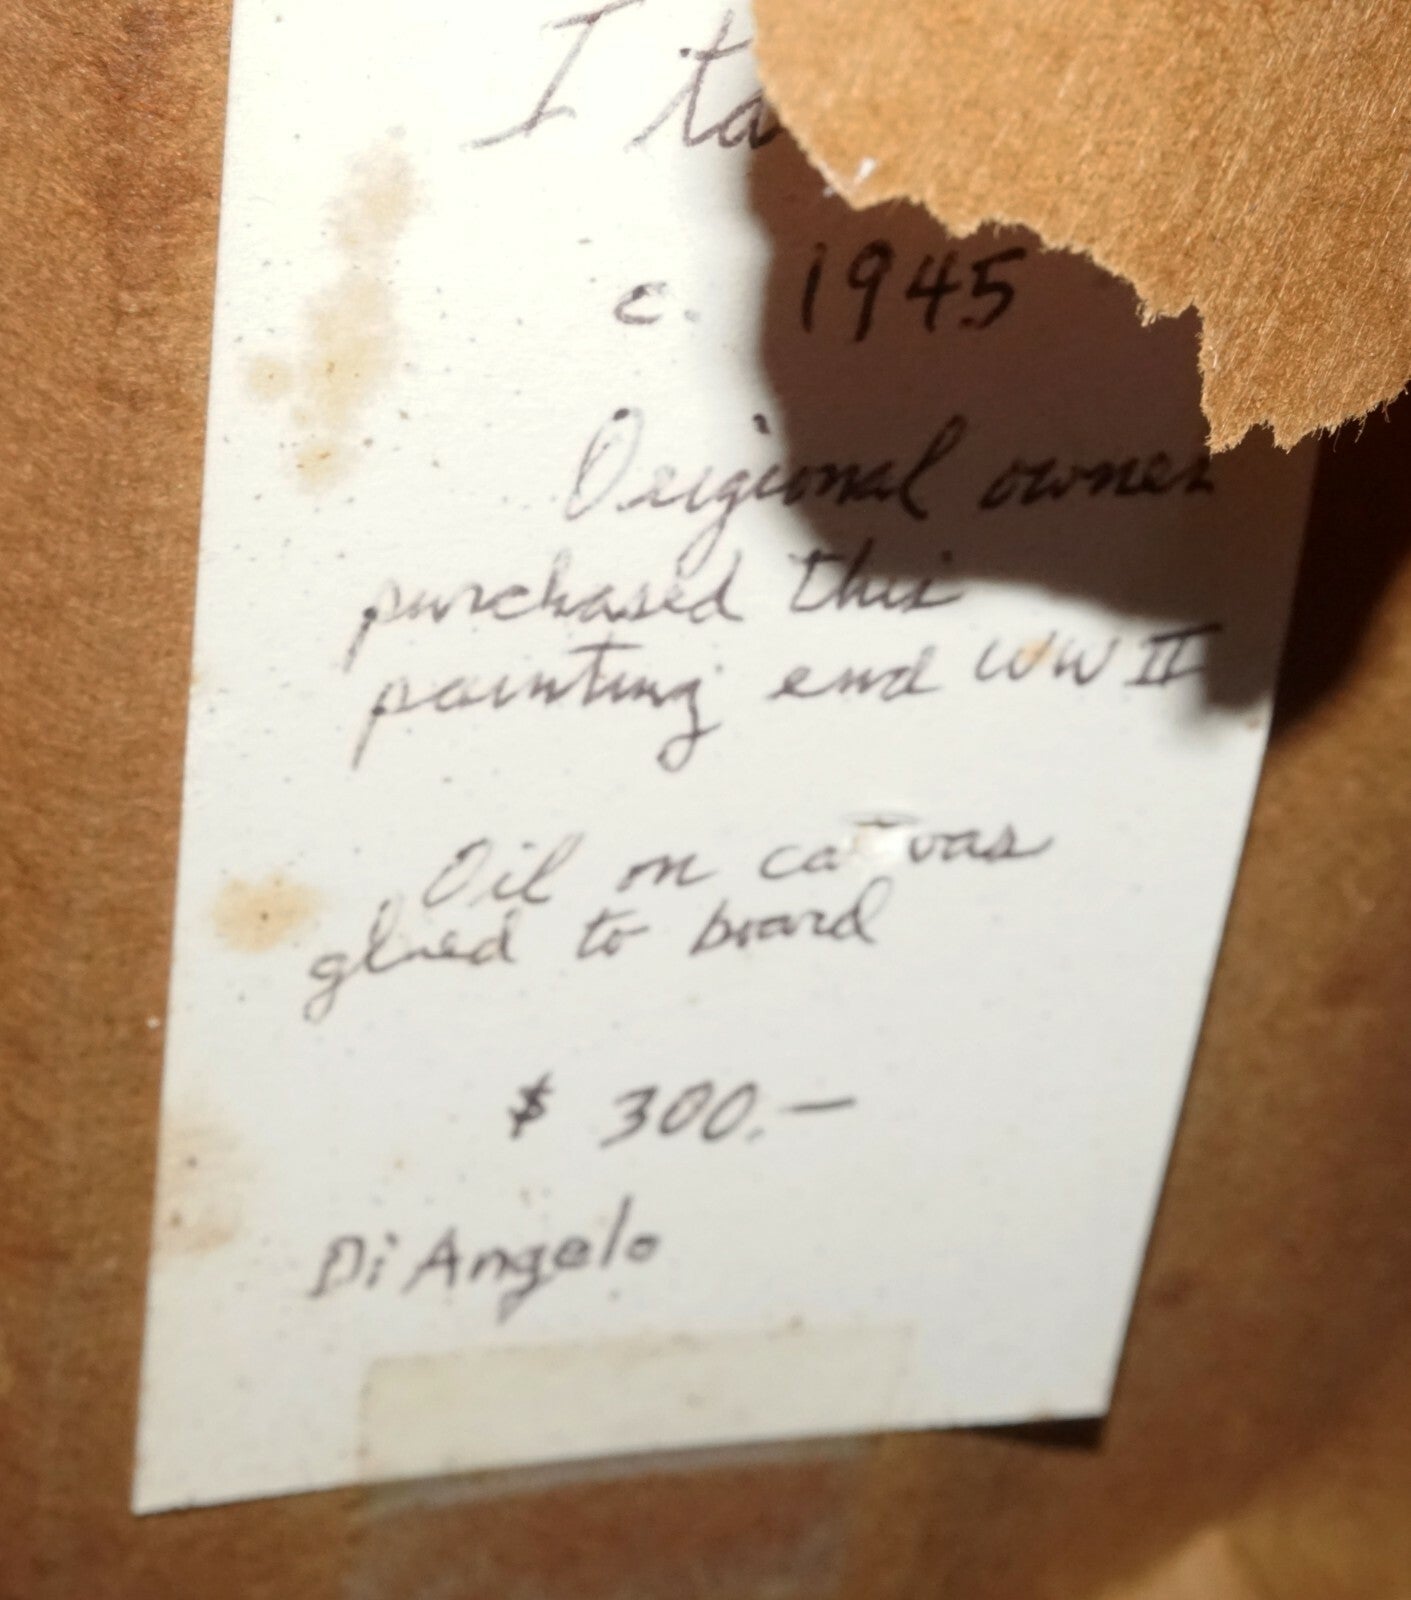 Ita
c. 1945
Origional owner
purchased this
painting end WW II
Oil on ca vas
glued to board
$ 300.—
Di Angelo